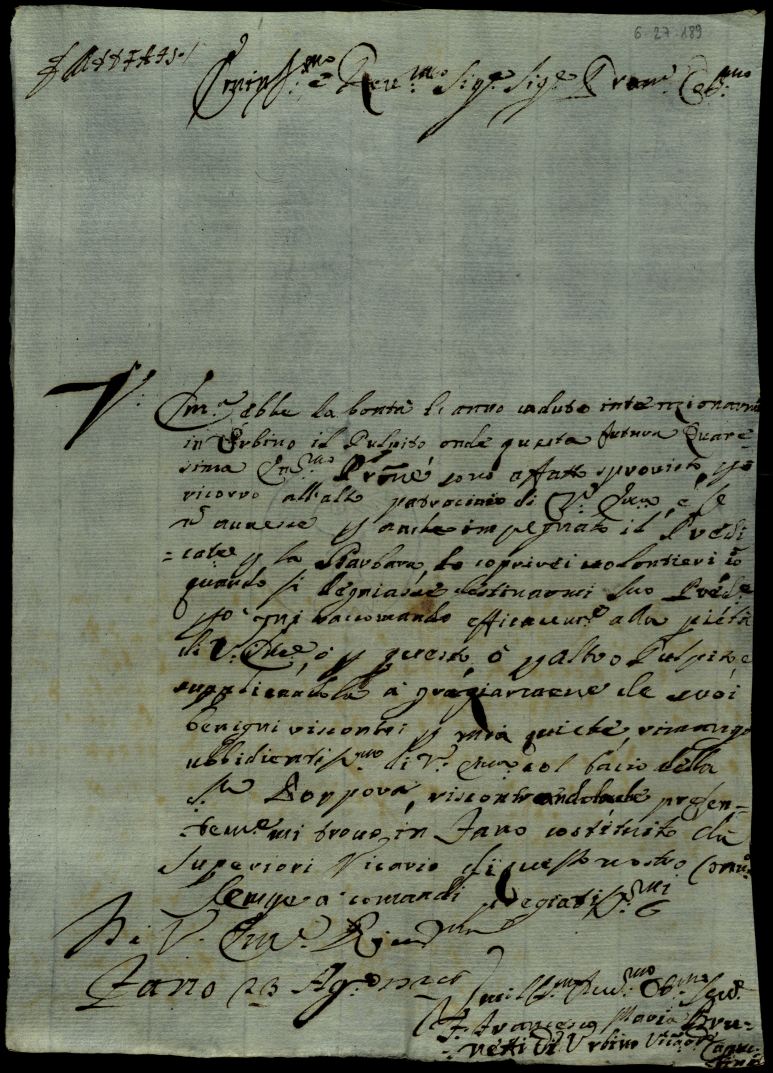 6-27-189
Emin.mo e Reu.mo Sig.e Sig.e Pron.e Col.mo
V. Em.a ebbe la bontà l'anno caduto intenzionarmi
in Urbino il Pulpito onde questa futura Quare=
sima Em.mo Prõne sono affatto sprovisto, p.o
ricorro all'alto patrocinio di V.a Em.a, e se
ñ avesse p anche impegnato il Predi
=cate p la Barbara, lo coprirei volontieri
quando si degniasse destinarmi suo Pred.e
p.o mi raccomando efficacem.e alla pietà
di V. Em.a, ò p questo, ò p altro Pulpito, e
supplicandola à graziarmene de suoi
benigni riscontri p mia quiete, rimango
ubbidientiss.mo di V.a Em.a col bacio della
S.ra Porpora, riscontrandola che presen=
tem.e mi trovo in Fano costituito da
Superiori Vicario di questo nostro Conu.
sempre a comandi pregiatiss.mi
Di V. Em.a R
Fano 23 Ag.o
Umiliss.mo Ob.mo Seru.
F. Francesco Maria Bru=
netti di Urbino Vic.o